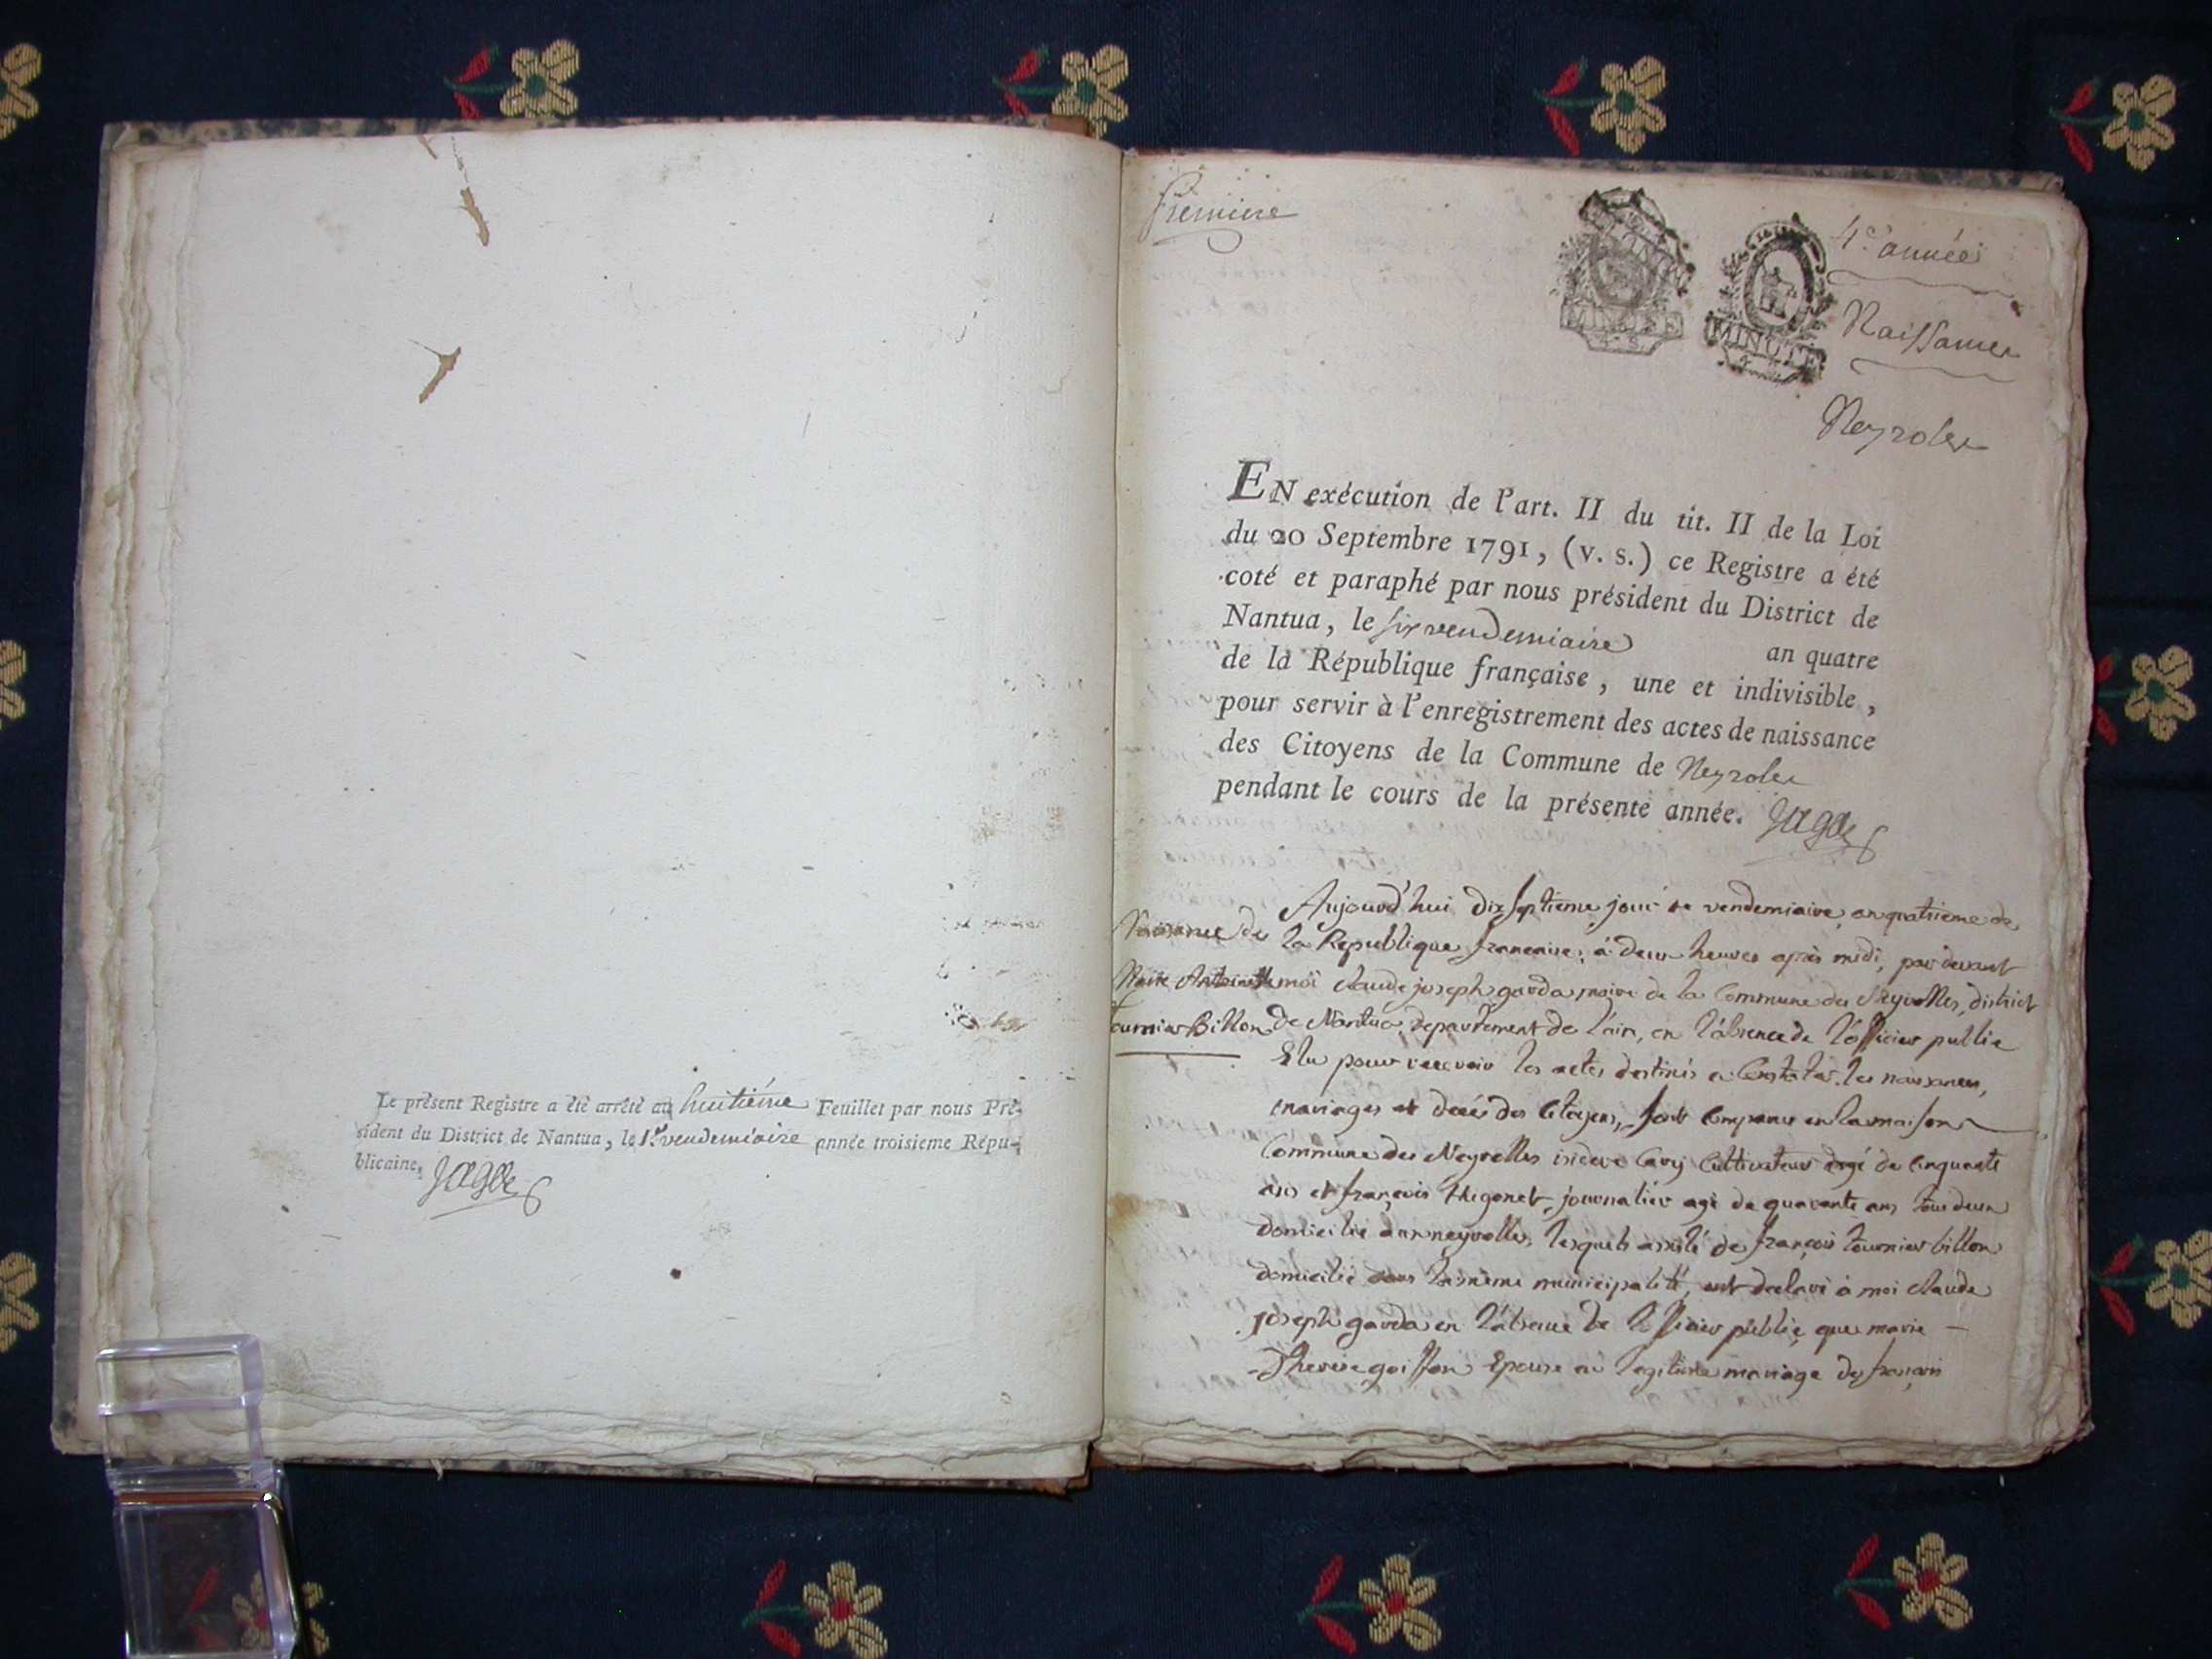 Le présent Registre a été arrêté au huitiéme Feuillet par nous Pré-
sident du District de Nantua, le 1.er vendemiaire année troisieme Répu-
blicaine.
Premiere
4.e année
MINUTE
MINUTE
Naissances
Neyroles
EN exécution de l'art. II du tit. II de la Loi
du 20 Septembre 1791, (v. s.) ce Registre a été
coté et paraphé par nous président du District de
Nantua, le six vendemiaire an quatre
de la République française, une et indivisible,
pour servir à l'enregistrement des actes de naissance
des Citoyens de la Commune de Neyroles
pendant le cours de la présente année.
Naissance de
Marie Antoinette
tournier Billon
Aujourd'hui dix septieme jour de vendemiaire an quatrieme de
la Republique francaise, à deux heures après midi, par devant
moi Claude joseph garda maire de la Commune des Neyrolles, district
De Nantua, departement de l'ain, en l'absence de l'officier public
Elu pour recevoir les actes destinés a Constater les naissances,
mariages et decés des Citoyens, sont Comparus en la maison
Commune des Neyrolles isidore Cavy Cultivateur agé de Cinquante
ans et françois journalier agé de quarante ans tous deux
domicilié aux neyrolles, lesquels assisté de françois tournier billon
domicilié dans la même municipalité, ont declaré à moi Claude
joseph garda en l'absence de l'officier public, que marie
Therese goiffon Epouse en legitime mariage de françois